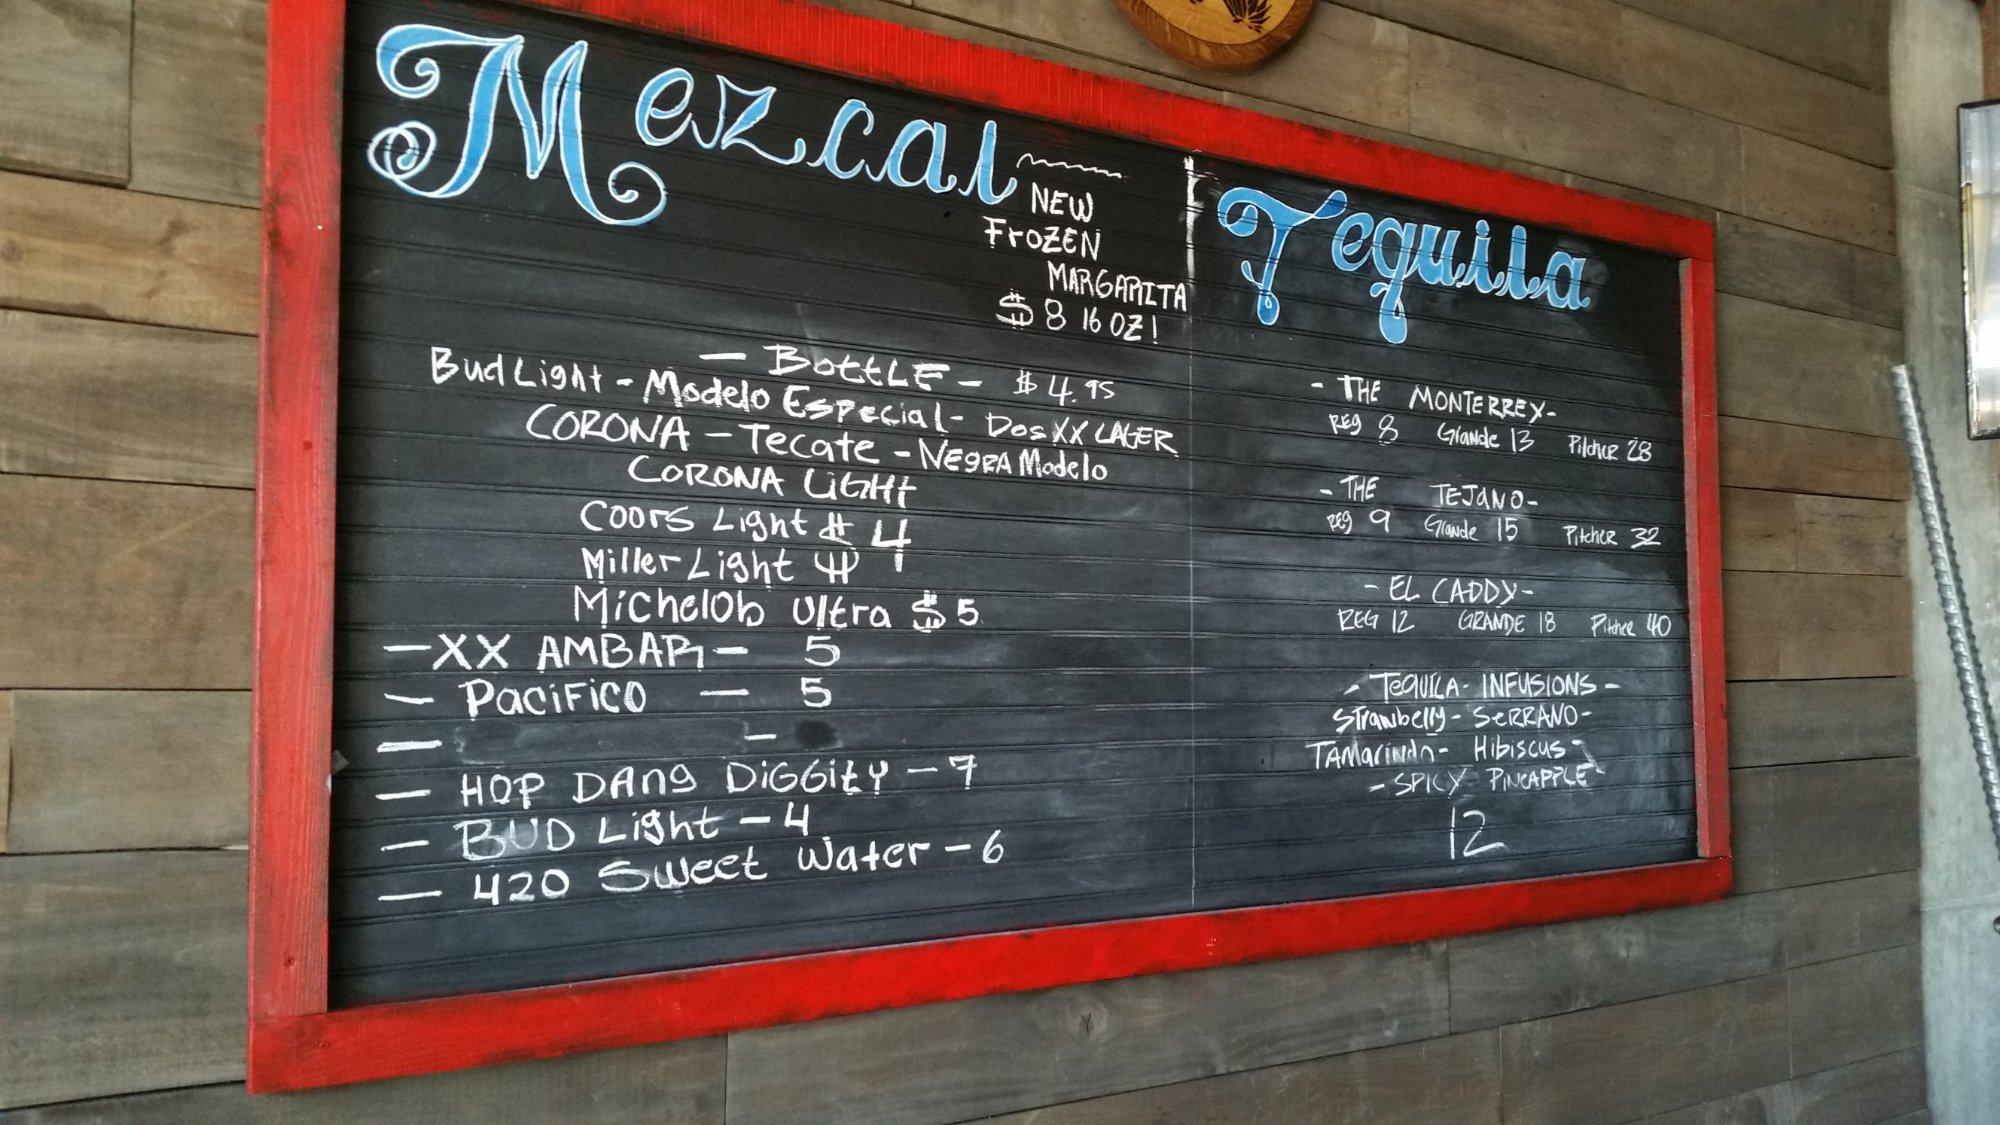 Mezcal
NEW
FrOZEN
MARGARITA
$8 16 OZ!
- BOttLE - $4.95
Bud Light - Modelo Especial - Dos XX LAGER
CORONA - Tecate - NEgRA Modelo
CORONA LIGHt
Coors Light $4
Miller Light $4
Michelob Ultra $5
- XX AMBAR - 5
- PaciFico - 5
- -
- HOP DANg DiGGitY - 7
- BUD Light - 4
- 420 Sweet Water - 6
Tequila
- THE MONTERREY -
REg 8 Grande 13 Pitcher 28
- THE TEJANO -
REg 9 Grande 15 Pitcher 32
- EL CADDY -
REG 12 GRANDE 18 Pitcher 40
- TeQUILA - INFUSIONS -
Strawberry - SERRANO -
TAMArindo - Hibiscus -
- SPICY PINEAPPLE -
12